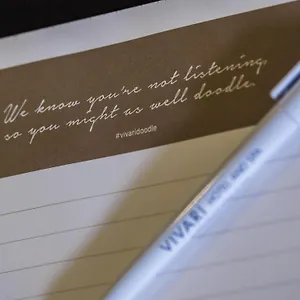 We know you're not listening,
so you might as well doodle.
#vivaridoodle
VIVARI HOTEL AND SPA